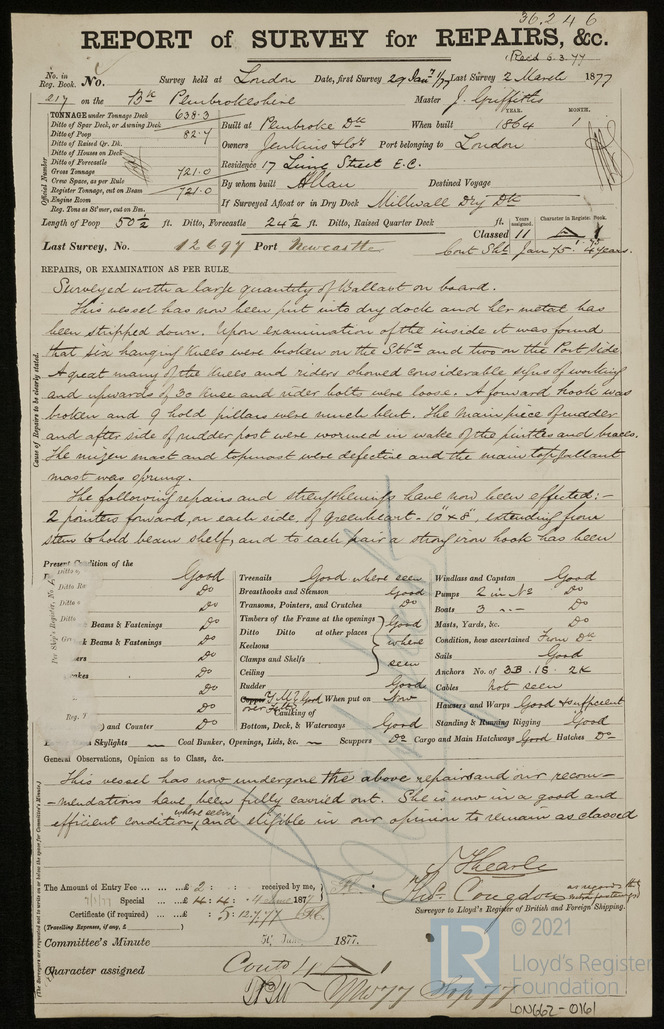 36.246
REPORT of SURVEY for REPAIRS, &c.
Recd 5.3.77
No. in Reg. Book. No. Survey held at London Date, first Survey 29 Jany 1877 Last Survey 2 March 1877
217 on the Bk Pembrokeshire Master J. Griffiths
TONNAGE under Tonnage Deck 638.3
Ditto of Spar Deck, or Awning Deck
Ditto of Poop 82.7
Ditto of Raised Qr. Dk.
Ditto of Houses on Deck
Ditto of Forecastle
Gross Tonnage 721.0
Crew Space, as per Rule
Register Tonnage, cut on Beam 721.0
Engine Room
Reg. Tons as St'mer, cut on Bm.
Official Number
YEAR. MONTH.
Built at Pembroke Dk When built 1864 1
Owners Jenkins & Co Port belonging to London
Residence 17 Lime Street E.C.
By whom built Allan Destined Voyage
If Surveyed Afloat or in Dry Dock Millwall Dry Dk
Length of Poop 50½ ft. Ditto, Forecastle 24½ ft. Ditto, Raised Quarter Deck ft.
Years assigned. Character in Register Book.
Classed 11 A 1
Last Survey, No. 12697 Port Newcastle Cont Shl Jan 75. 4 years.
REPAIRS, OR EXAMINATION AS PER RULE
Cause of Repairs to be clearly stated.
Surveyed with a large quantity of Ballast on board.
This vessel has now been put into dry dock and her metal has
been stripped down. Upon examination of the inside it was found
that six hanging Knees were broken on the Stbd and two on the Port Side.
A great many of the Knees and riders showed considerable signs of working
and upwards of 30 Knee and rider bolts were loose. A forward hook was
broken and 9 hold pillars were much bent. The main piece of rudder
and after side of rudder post were wormed in wake of the pintles and braces.
The mizen mast and topmast were defective and the main top gallant
mast was sprung.
The following repairs and strengthenings have now been effected:-
2 pointers forward, on each side, of Greenheart - 10" x 8", extending from
stem to hold beam shelf, and to each pair a strong iron hook has been
Present Condition of the
Good
Do
Do
Do
Beams & Fastenings Do
Beams & Fastenings Do
Do
Do
Do
Do
) and Counter Do
Treenails Good where seen
Breasthooks and Stemson Good
Transoms, Pointers, and Crutches Do
Timbers of the Frame at the openings Good
Ditto Ditto at other places
Keelsons where
Clamps and Shelfs
Ceiling seen
Rudder Good
Copper Y.M. Good When put on Now
over Felt Caulking of
Bottom, Deck, & Waterways Good
Windlass and Capstan Good
Pumps 2 in No Do
Boats 3 Do
Masts, Yards, &c. Do
Condition, how ascertained From Dk
Sails Good
Anchors No. of 3B. 1S. 2K
Cables not seen
Hawsers and Warps Good & sufficient
Standing & Running Rigging Good
Skylights Coal Bunker, Openings, Lids, &c. Scuppers Do Cargo and Main Hatchways Good Hatches Do
General Observations, Opinion as to Class, &c.
This vessel has now undergone the above repairs and our recom-
-mendations have been fully carried out. She is now in a good and
efficient condition, where seen, and eligible in our opinion to remain as classed
(The Surveyors are requested not to write on or below the space for Committee's Minute.)
The Amount of Entry Fee £ 2 : : received by me,
Special £ 4 : 4 : 187
Certificate (if required) £ : 5 :
(Travelling Expenses, if any, £ )
J Hearle
Thos. Congdon
Surveyor to Lloyd's Register of British and Foreign Shipping.
Committee's Minute 1877.
Character assigned Contd 4 A 1
© 2021
LR
Lloyd's Register
Foundation
LON662-0161